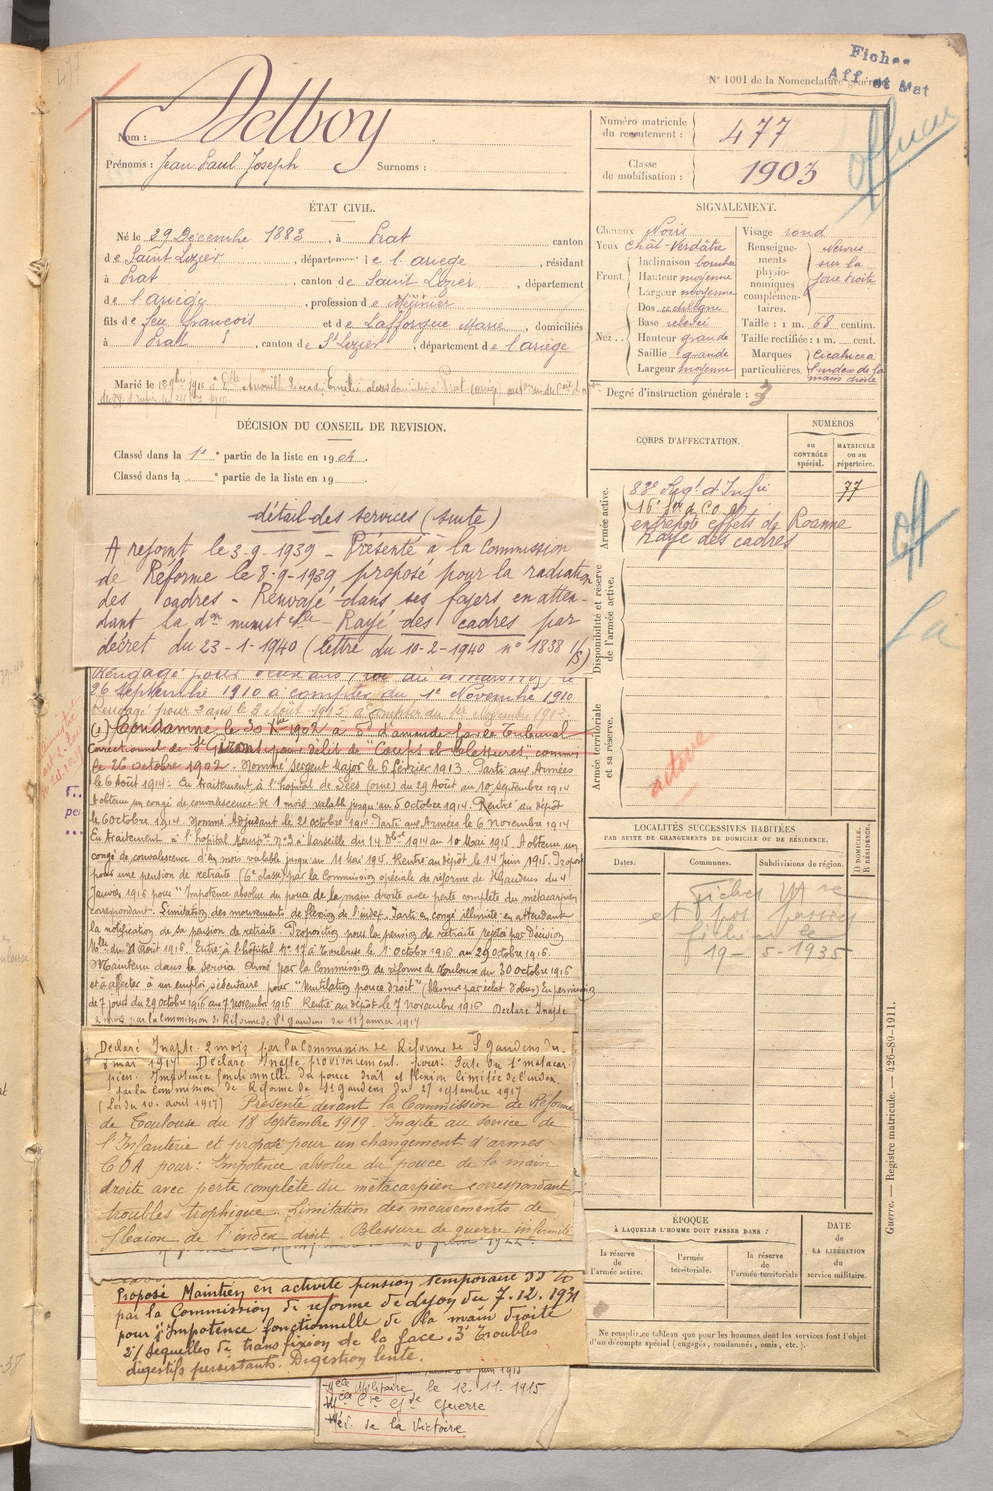 Fiches
Aff et Mat
N° 1001 de la Nomenclature générale
477
Nom : Delboy
Prénoms : Jean Paul Joseph Surnoms :
Numéro matricule
du recrutement : 477
Classe
de mobilisation : 1903
ÉTAT CIVIL.
Né le 29 Décembre 1883, à Prat canton
de Saint Lizier, département de l'ariège, résidant
à Prat, canton de Saint Lizier, département
de l'ariège, profession de Meunier
fils de feu François et de Lafforgue Marie, domiciliés
à Prat, canton de St Lizier, département de l'ariège
Marié le
SIGNALEMENT.
Cheveux Noirs
Yeux chât-verdâtre
Front. Inclinaison bombée
Hauteur moyenne
Largeur moyenne
Nez.. Dos rectiligne
Base relevée
Hauteur grande
Saillie grande
Largeur moyenne
Visage rond
Renseignements physionomiques complémentaires. Nœvus sur la joue droite
Taille : 1 m. 68 centim.
Taille rectifiée : 1 m. cent.
Marques particulières. Cicatrice à l'index de la main droite
Degré d'instruction générale : 3
DÉCISION DU CONSEIL DE REVISION.
Classé dans la 1e partie de la liste en 1904.
Classé dans la e partie de la liste en 19
CORPS D'AFFECTATION.
NUMÉROS
au
CONTRÔLE
spécial.
MATRICULE
ou au
répertoire.
Armée active.
83e Régt d'Infie 77
16e
entrepôt effets de Roanne
Rayé des cadres
Disponibilité et réserve
de l'armée active.
Armée territoriale
et sa réserve.
active
détail des services (suite)
A rejoint le 3-9-1939 - Présenté à la Commission
de Réforme le 8-9-1939 proposé pour la radiation
des cadres - Renvoyé dans ses foyers en atten-
dant la don ministelle - Rayé des cadres par
décret du 23-1-1940 (lettre du 10-2-1940 n° 1838 1/8)
Rengagé pour deux ans le
26 Septembre 1910 à compter du 1er Novembre 1910
Rengagé pour 2 ans le 2 Août 1912 à compter du 1er Novembre 1912.
(1) Condamné le 30 Xbre 1902 à 5f d'amende par le Tribunal
Correctionnel de St Girons pour délit de "Coups et blessures", commis
le 26 octobre 1902 - Nommé Sergent Major le 6 février 1913. Parti aux Armées
le 6 Août 1914. En traitement à l'hôpital de Sées (orne) du 29 Août au 10 Septembre 1914
A obtenu un congé de convalescence de 1 mois valable jusqu'au 5 octobre 1914. Rentré au dépôt
le 6 octobre 1914. Nommé Adjudant le 21 octobre 1914. Parti aux Armées le 6 novembre 1914
En traitement à l'hôpital tempre n°3 à Marseille du 14 Dbre 1914 au 10 Mai 1915. A obtenu un
congé de convalescence d'un mois valable jusqu'au 11 Mai 1915. Rentré au dépôt le 14 Juin 1915. Proposé
pour une pension de retraite (6e classe) par la Commission spéciale de réforme de St Gaudens du 4
Janvier 1916 pour "Impotence absolue du pouce de la main droite avec perte complète du métacarpien
correspondant. Limitation des mouvement de flexion de l'index. Parti en congé illimité en attendant
la notification de sa pension de retraite. Proposition pour la pension de retraite rejetée par Décision
Mlle du 31 Août 1916. Entré à l'hôpital n° 17 à Toulouse le 1 Octobre 1916 au 29 Octobre 1916.
Maintenu dans le service Armé par la Commission de réforme de Toulouse du 30 octobre 1916
et à affecter à un emploi sédentaire pour "Mutilation pouce droit" (blessure par éclat d'obus) En permission
de 7 jours du 29 Octobre 1916 au 7 novembre 1916 Rentré au dépôt le 7 novembre 1916 Déclaré Inapte
2 mois par la Commission de Réforme de St Gaudens du 11 janvier 1917
Déclaré Inapte 2 mois par la Commission de Réforme de St Gaudens du
8 mai 1917 Déclaré Inapte provisoirement pour: Perte du 1er métacar-
pien. Impotence fonctionnelle du pouce droit et flexion limitée de l'index
par la Commission de Réforme de St Gaudens du 27 septembre 1917
(Loi du 10 août 1917) Présenté devant la Commission de Réforme
de Toulouse du 18 Septembre 1919. Inapte au service de
l'Infanterie et proposé pour un changement d'armes
COA pour: Impotence absolue du pouce de la main
droite avec perte complète du métacarpien correspondant
troubles trophique. Limitation des mouvements de
flexion de l'index droit. Blessure de guerre infirmité
Proposé Maintien en activité pension temporaire
par la Commission de réforme de Lyon du 7.12.1931
pour 1° Impotence fonctionnelle de la main droite
2°/ Sequelles de transfixion de la face. 3° Troubles
digestifs persistants. Digestion lente.
Mlle Militaire, le 12-11-1915
Mlle Cre Gde Guerre
Méd. de la Victoire
LOCALITÉS SUCCESSIVES HABITÉES
PAR SUITE DE CHANGEMENTS DE DOMICILE OU DE RÉSIDENCE.
Dates. Communes. Subdivisions de région.
D DOMICILE.
R RÉSIDENCE.
Fiches
19-5-1935
ÉPOQUE
À LAQUELLE L'HOMME DOIT PASSER DANS :
la réserve
de
l'armée active.
l'armée
territoriale.
la réserve
de
l'armée territoriale
DATE
de
LA LIBÉRATION
du
service militaire.
Ne remplir ce tableau que pour les hommes dont les services font l'objet
d'un décompte spécial (engagés, condamnés, omis, etc.).
Guerre. — Registre matricule. — 426-89-1911.